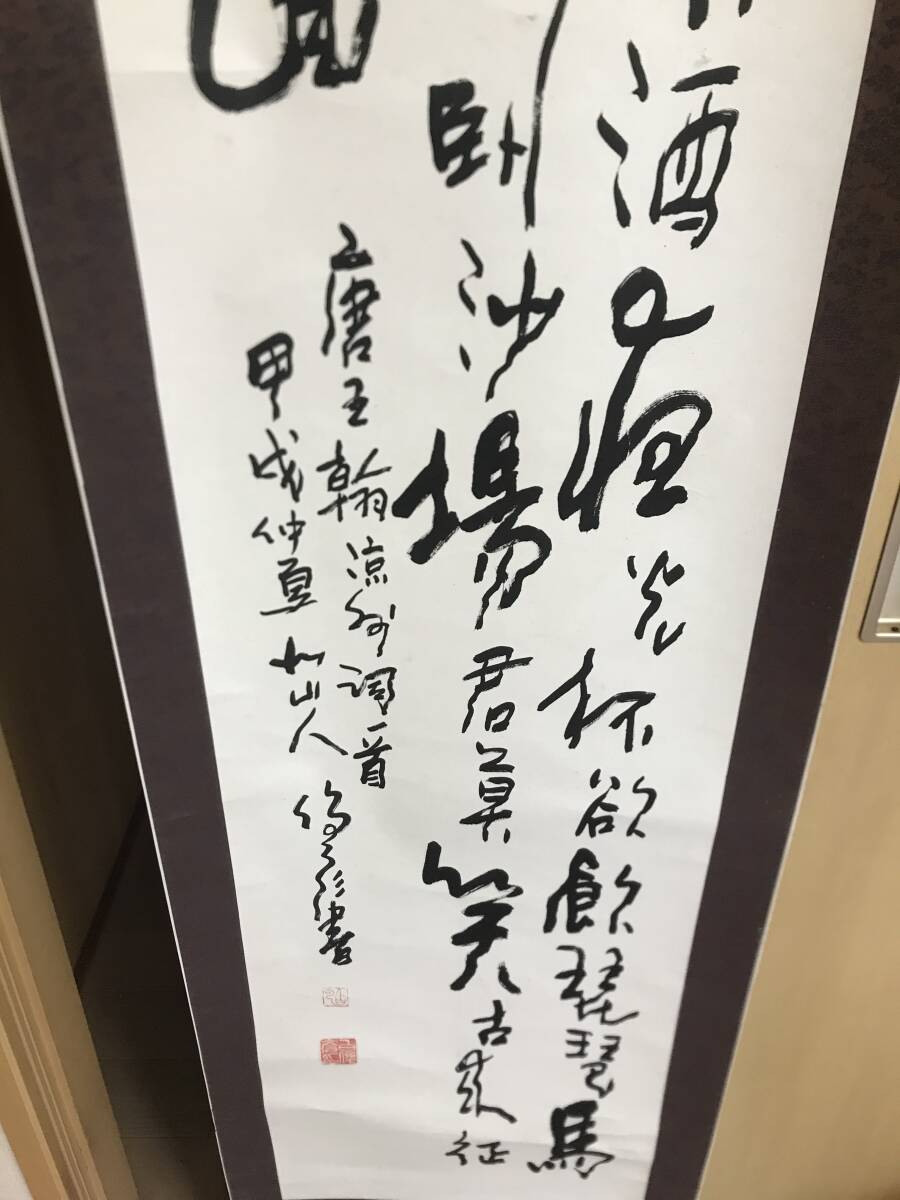 酒夜光杯欲飲琵琶馬
卧沙場君莫笑古来征
唐王翰凉州詞一首
甲戌仲夏 山人 書